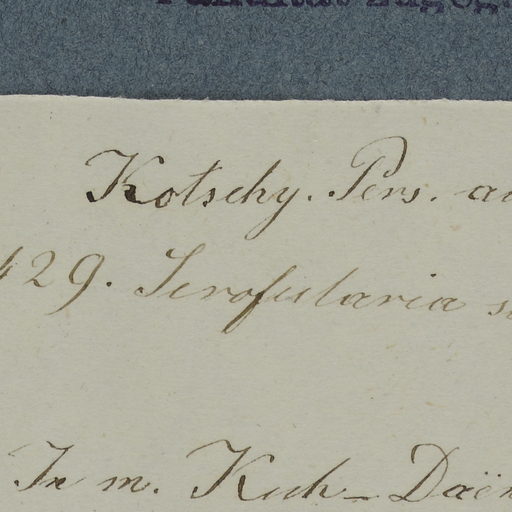 Kotschy. Pers. au
429. Scrofularia s
In m. Kuh-Daën